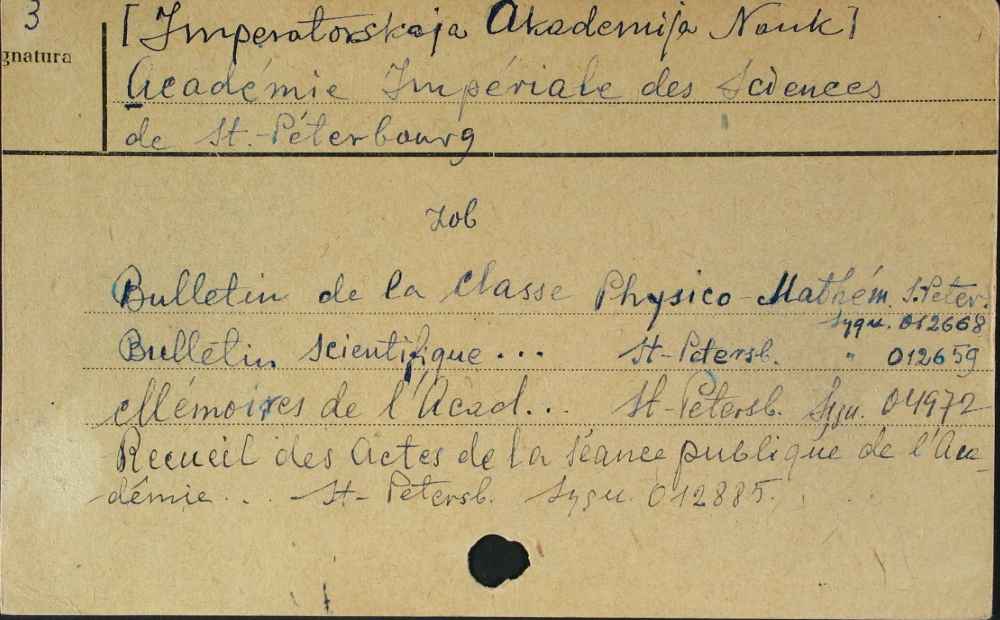 3
gnatura
[Imperatorskaja Akademija Nauk]
Académie Impériale des Sciences
de St.-Péterbourg
zob
Bulletin de la Classe Physico-Mathém. S.Peter.
Sygn. 012668
Bulletin scientifique... St-Petersb. " 012659
Mémoires de l'Acad... St-Petersb. Sygn. 04972
Recueil des Actes de la Séance publique de l'Aca-
démie... St-Petersb. Sygn. 012885.